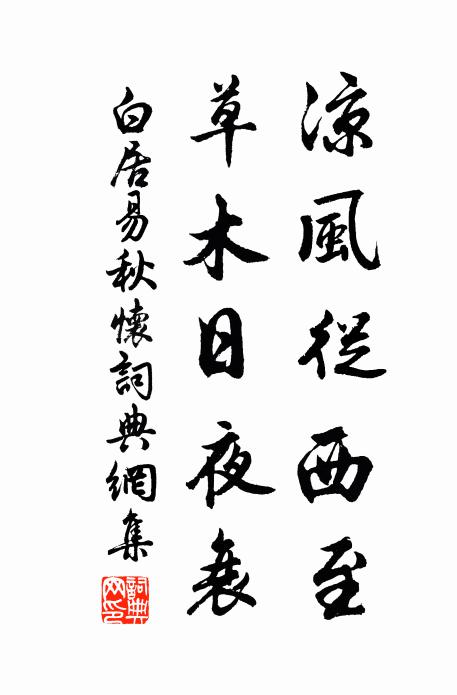 涼風從西至
草木日夜衰
白居易秋懷詞典網集
詞典網印